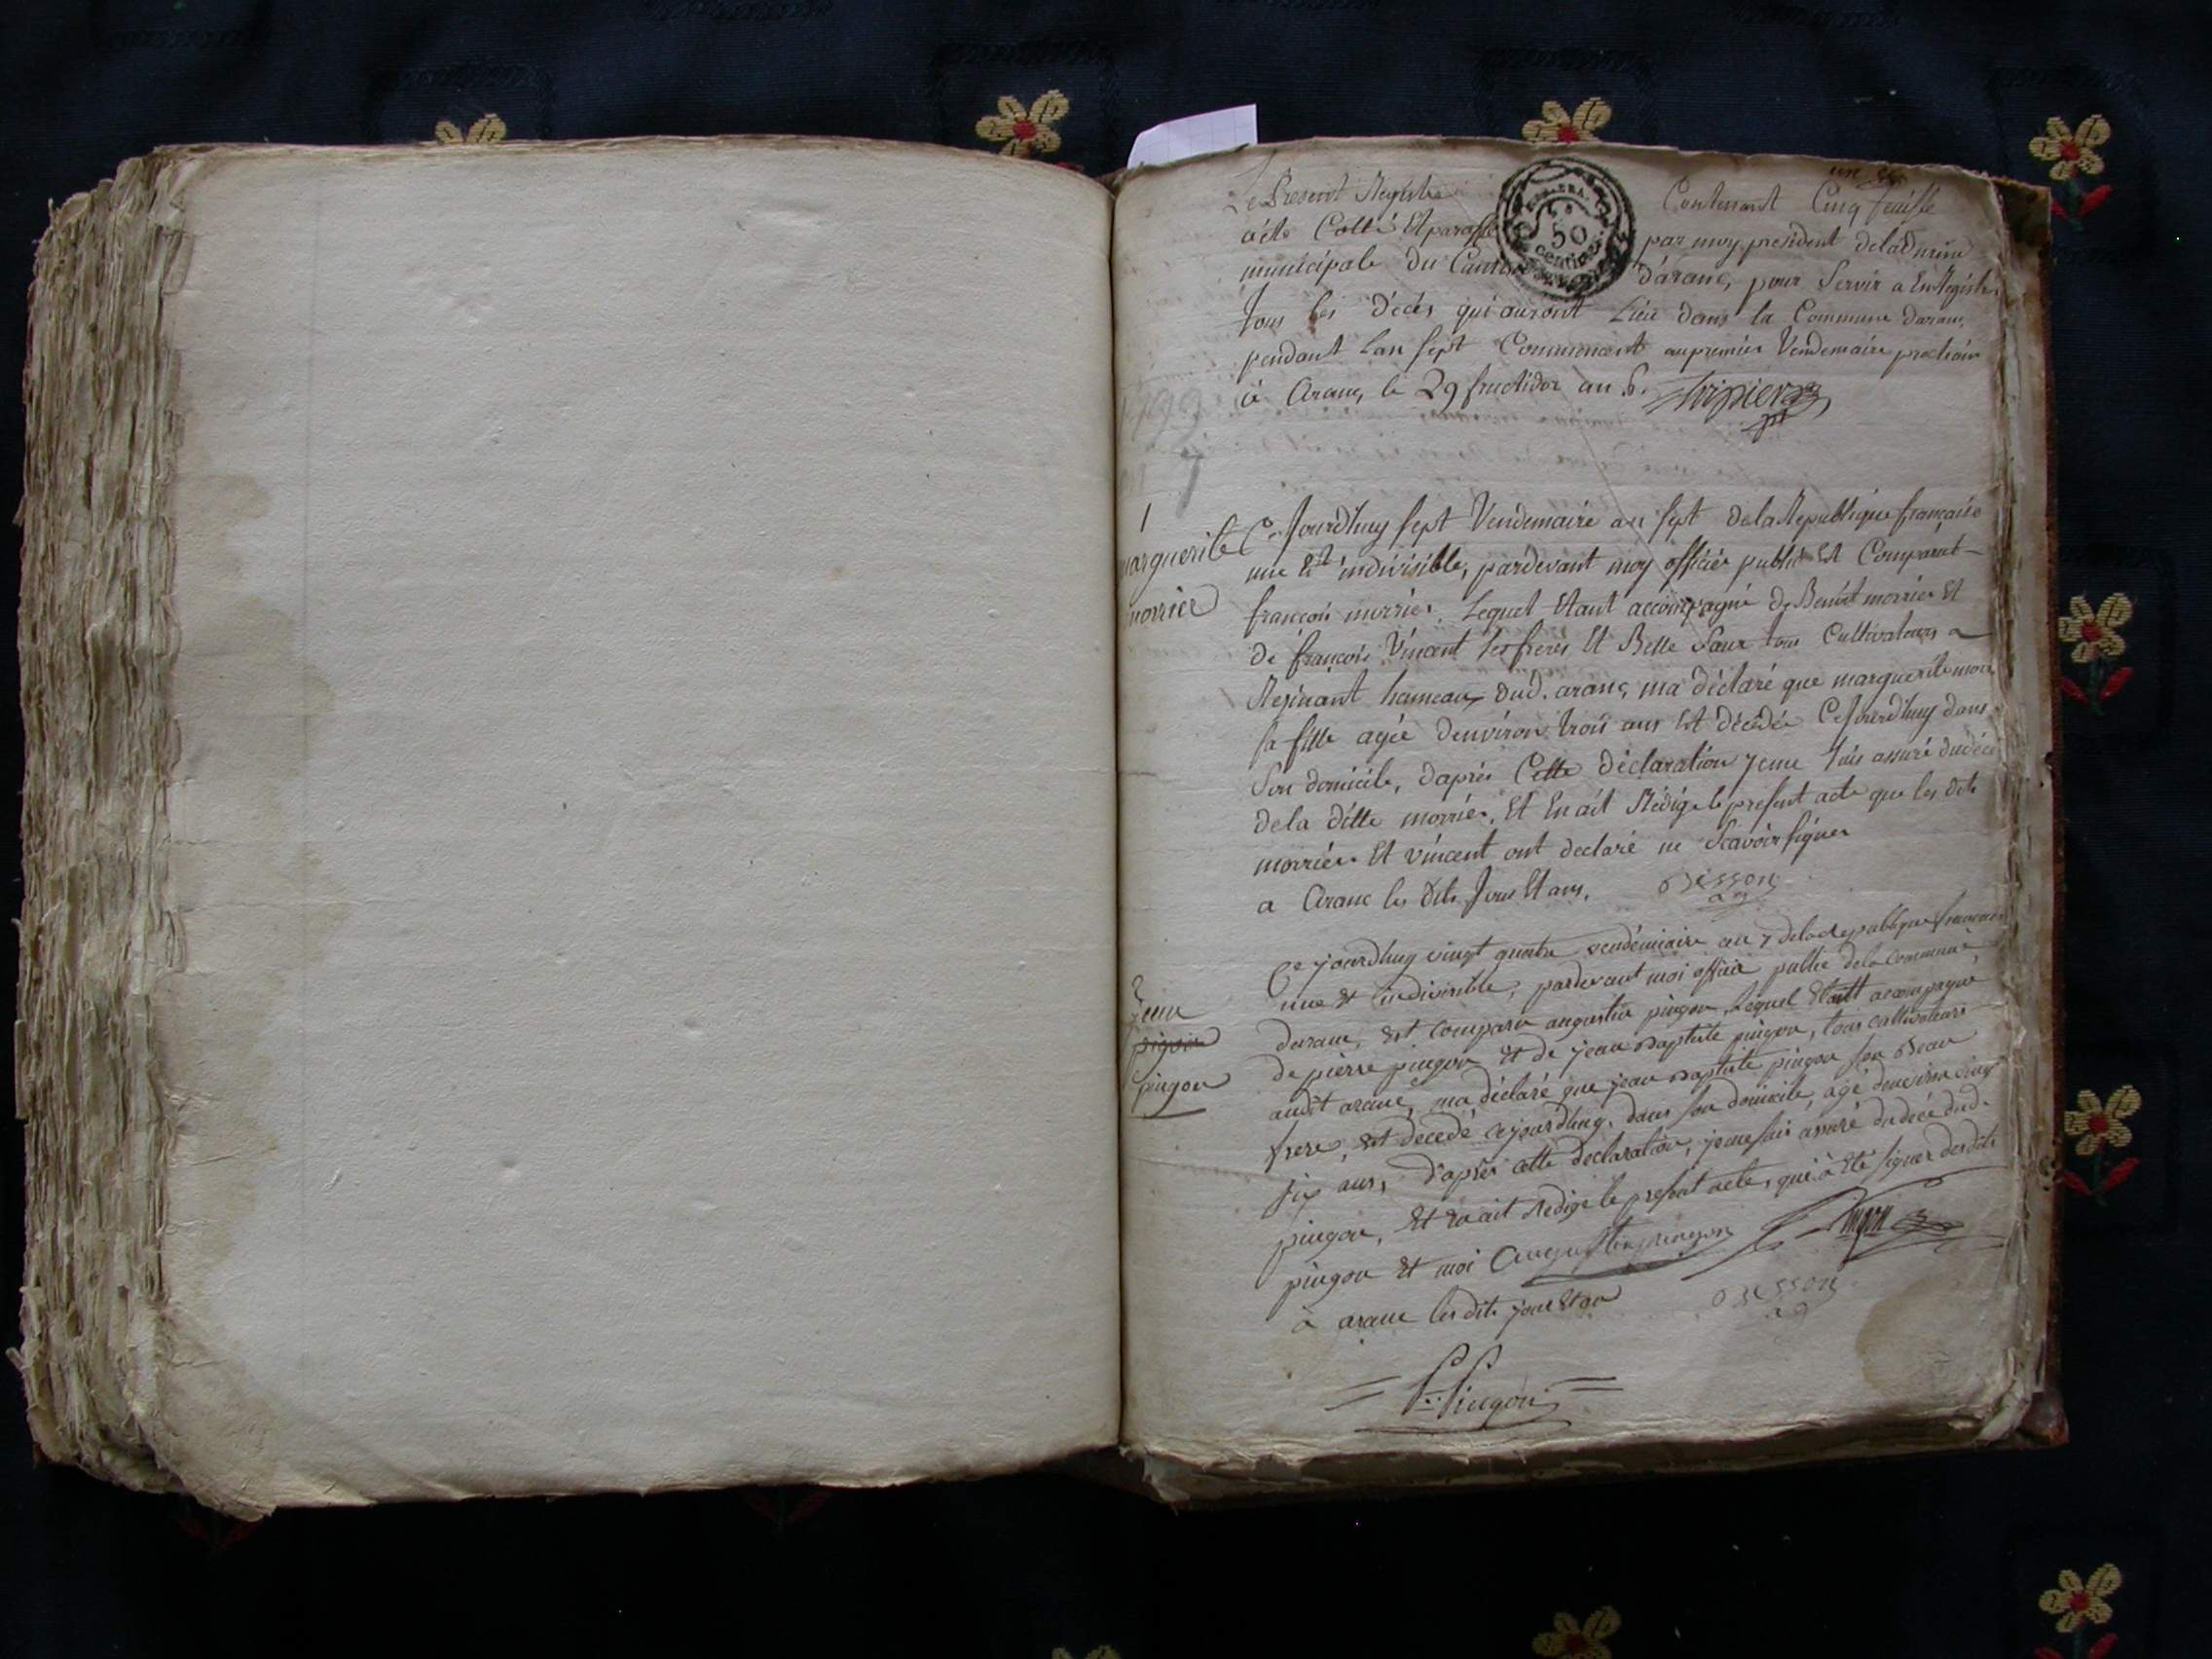 un
Le Present Registre Contenant Cinq feuille
a été Cotté Et paraffé par moy president
municipale du Canton d'aranc, pour Servir a EnRegistrer
50
centimes
Tous les décès qui auront Lieu dans la Commune daranc
pendant Lan sept Commencent au premier Vendemaire prochain
à Aranc, le 29 fructidor an 6. Tripier
pdt
1799
7
1
marguerite
morrier
Ce Jourdhuy sept Vendemaire an sept de la Republique francaise
une Et indivisible, pardevant moy officier public Est Comparut
francois morrier, Lequel Etant accompagné de Benoit morrier Et
de francois Vincent ses freres Et Belle Sœur tous Cultivateurs a
Resinant hameaux dud. aranc, ma déclaré que marguerite morrier
sa fille agée denviron trois ans Est décédée Cejourdhuy dans
Son domicile, daprés Cette declaration je me suis assuré du décé
de la ditte morrier, Et En ait Rédigé le present acte que les dits
morrier Et vincent ont declaré ne Scavoir signer
a Aranc les dits Jour Et ans. Besson
ag
2
jean
pigon
pingon
Ce jourdhuy vingt quatre vendémiaire an 7 de la republique francaise
une Et indivisible, pardevant moi officié public de la commune
daranc, Est comparu augustin pingon, Lequel Etantt acompagné
de pierre pingon Et de jean Baptiste pingon, tous cultivateurs
audit aranc, ma déclaré que jean Baptiste pingon son Beau
frere, Est decedé cejourdhuy, dans son domicile, agé denviron cinq
six ans, d'aprés cette declaration, je me suis assuré du decé dud.
pingon, Et En ait Redigé le present acte, qui à Eté signer desdits
pingon Et moi Augustin pingon Pingon
à aranc les dits jour Et an Besson
ag
P. Pingon